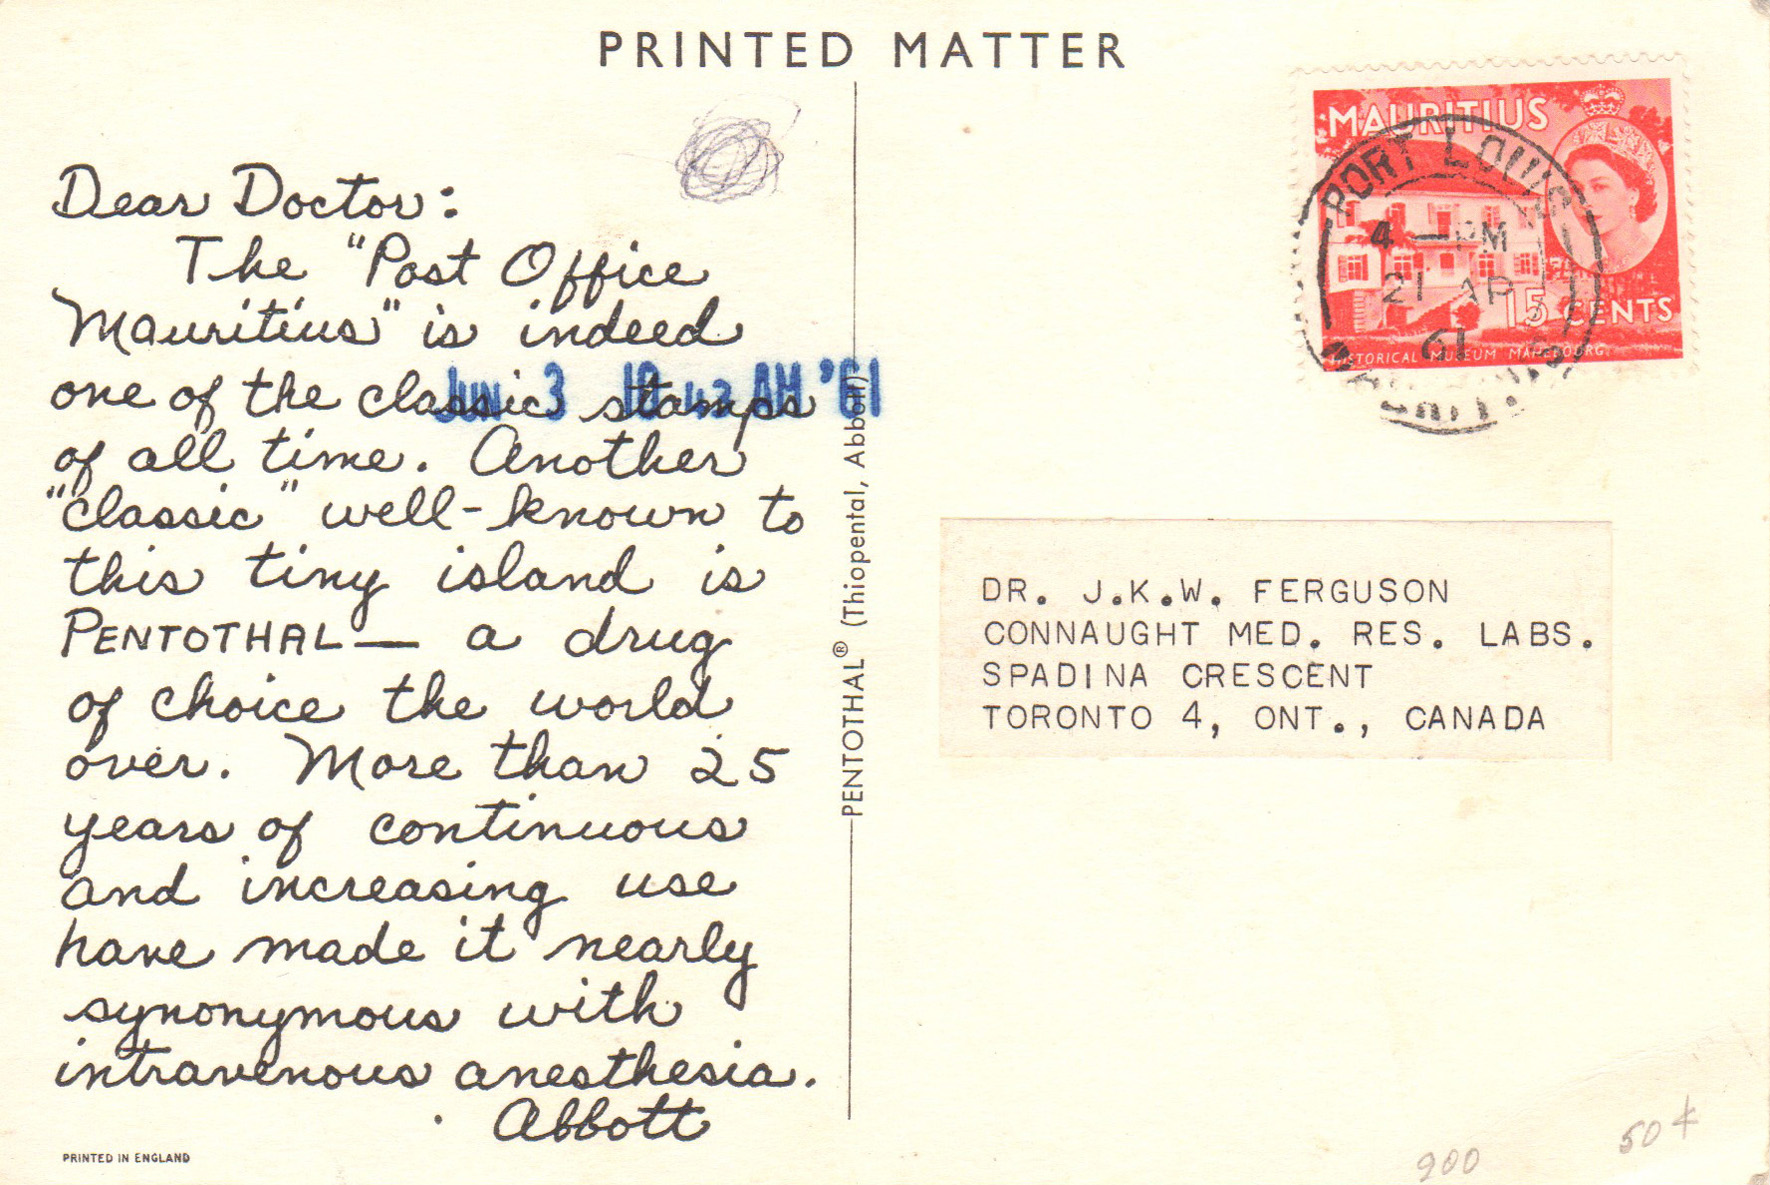 PRINTED MATTER
Dear Doctor:
The "Post Office
Mauritius" is indeed
one of the classic stamps
of all time. Another
"classic" well-known to
this tiny island is
PENTOTHAL — a drug
of choice the world
over. More than 25
years of continuous
and increasing use
have made it nearly
synonymous with
intravenous anesthesia.
Abbott
PRINTED IN ENGLAND
JUN 3 10 43 AM '61
PENTOTHAL® (Thiopental, Abbott)
MAURITIUS
15 CENTS
HISTORICAL MUSEUM MAHEBOURG
PORT LOUIS
4 — PM
21 AP
61
MAURITIUS
DR. J.K.W. FERGUSON
CONNAUGHT MED. RES. LABS.
SPADINA CRESCENT
TORONTO 4, ONT., CANADA
50¢
900